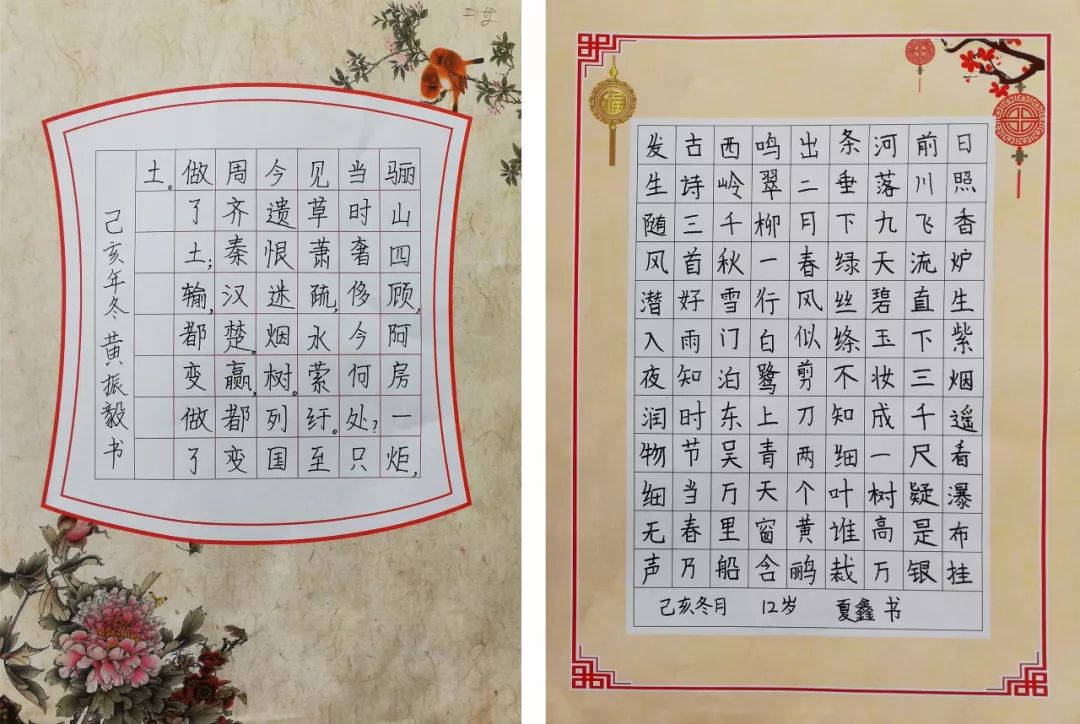 骊山四顾,阿房一炬,
当时奢侈今何处?只
见草萧疏,水萦纡。至
今遗恨迷烟树。列国
周齐秦汉楚。赢,都变
做了土;输,都变做了
土。
己亥年冬 黄振毅 书
日照香炉生紫烟遥看瀑布挂
前川飞流直下三千尺疑是银
河落九天碧玉妆成一树高万
条垂下绿丝绦不知细叶谁裁
出二月春风似剪刀两个黄鹂
鸣翠柳一行白鹭上青天窗含
西岭千秋雪门泊东吴万里船
古诗三首好雨知时节当春乃
发生随风潜入夜润物细无声
己亥冬月 12岁 夏鑫 书